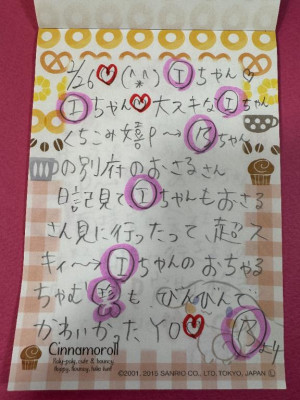 2/26♡(^*^)Ⓘちゃん♡
Ⓘちゃん♡大スキなⒾちゃん
くちこみ嬉P〜→乃ちゃん
の別府のおさるさん
日記見てⒾちゃんもおさる
さん見に行ったって超ス
キィ〜→Ⓘちゃんのおちゃる
ちゃむ も びんびんで
かわいかったYO♡乃より
Cinnamoroll
Roly-poly, cute & bouncy,
floppy, flouncy, fluky fun!
©2001, 2015 SANRIO CO., LTD. TOKYO, JAPAN Ⓛ